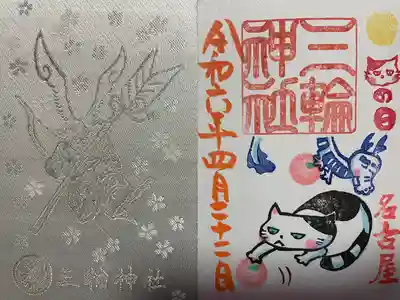 の日
名古屋
三輪
神社
令和六年四月二十二日
三輪神社